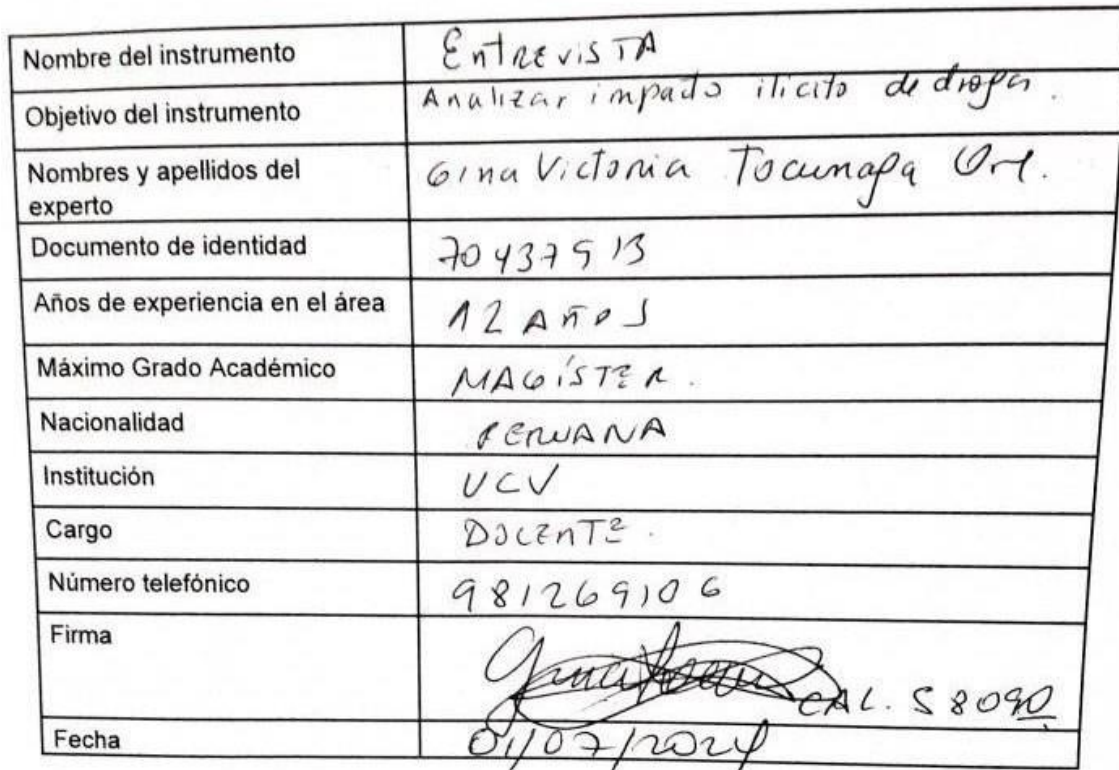 Nombre del instrumento EntREvisTA
Objetivo del instrumento Analizar impacto ilícito de drogas.
Nombres y apellidos del
experto Gina Victoria Tocunaga Ore.
Documento de identidad
Años de experiencia en el área 12 AÑOS
Máximo Grado Académico MAGÍSTER.
Nacionalidad PERUANA
Institución UCV
Cargo DOCENTE.
Número telefónico 981269106
Firma CAL. 58090
Fecha 01/07/2024